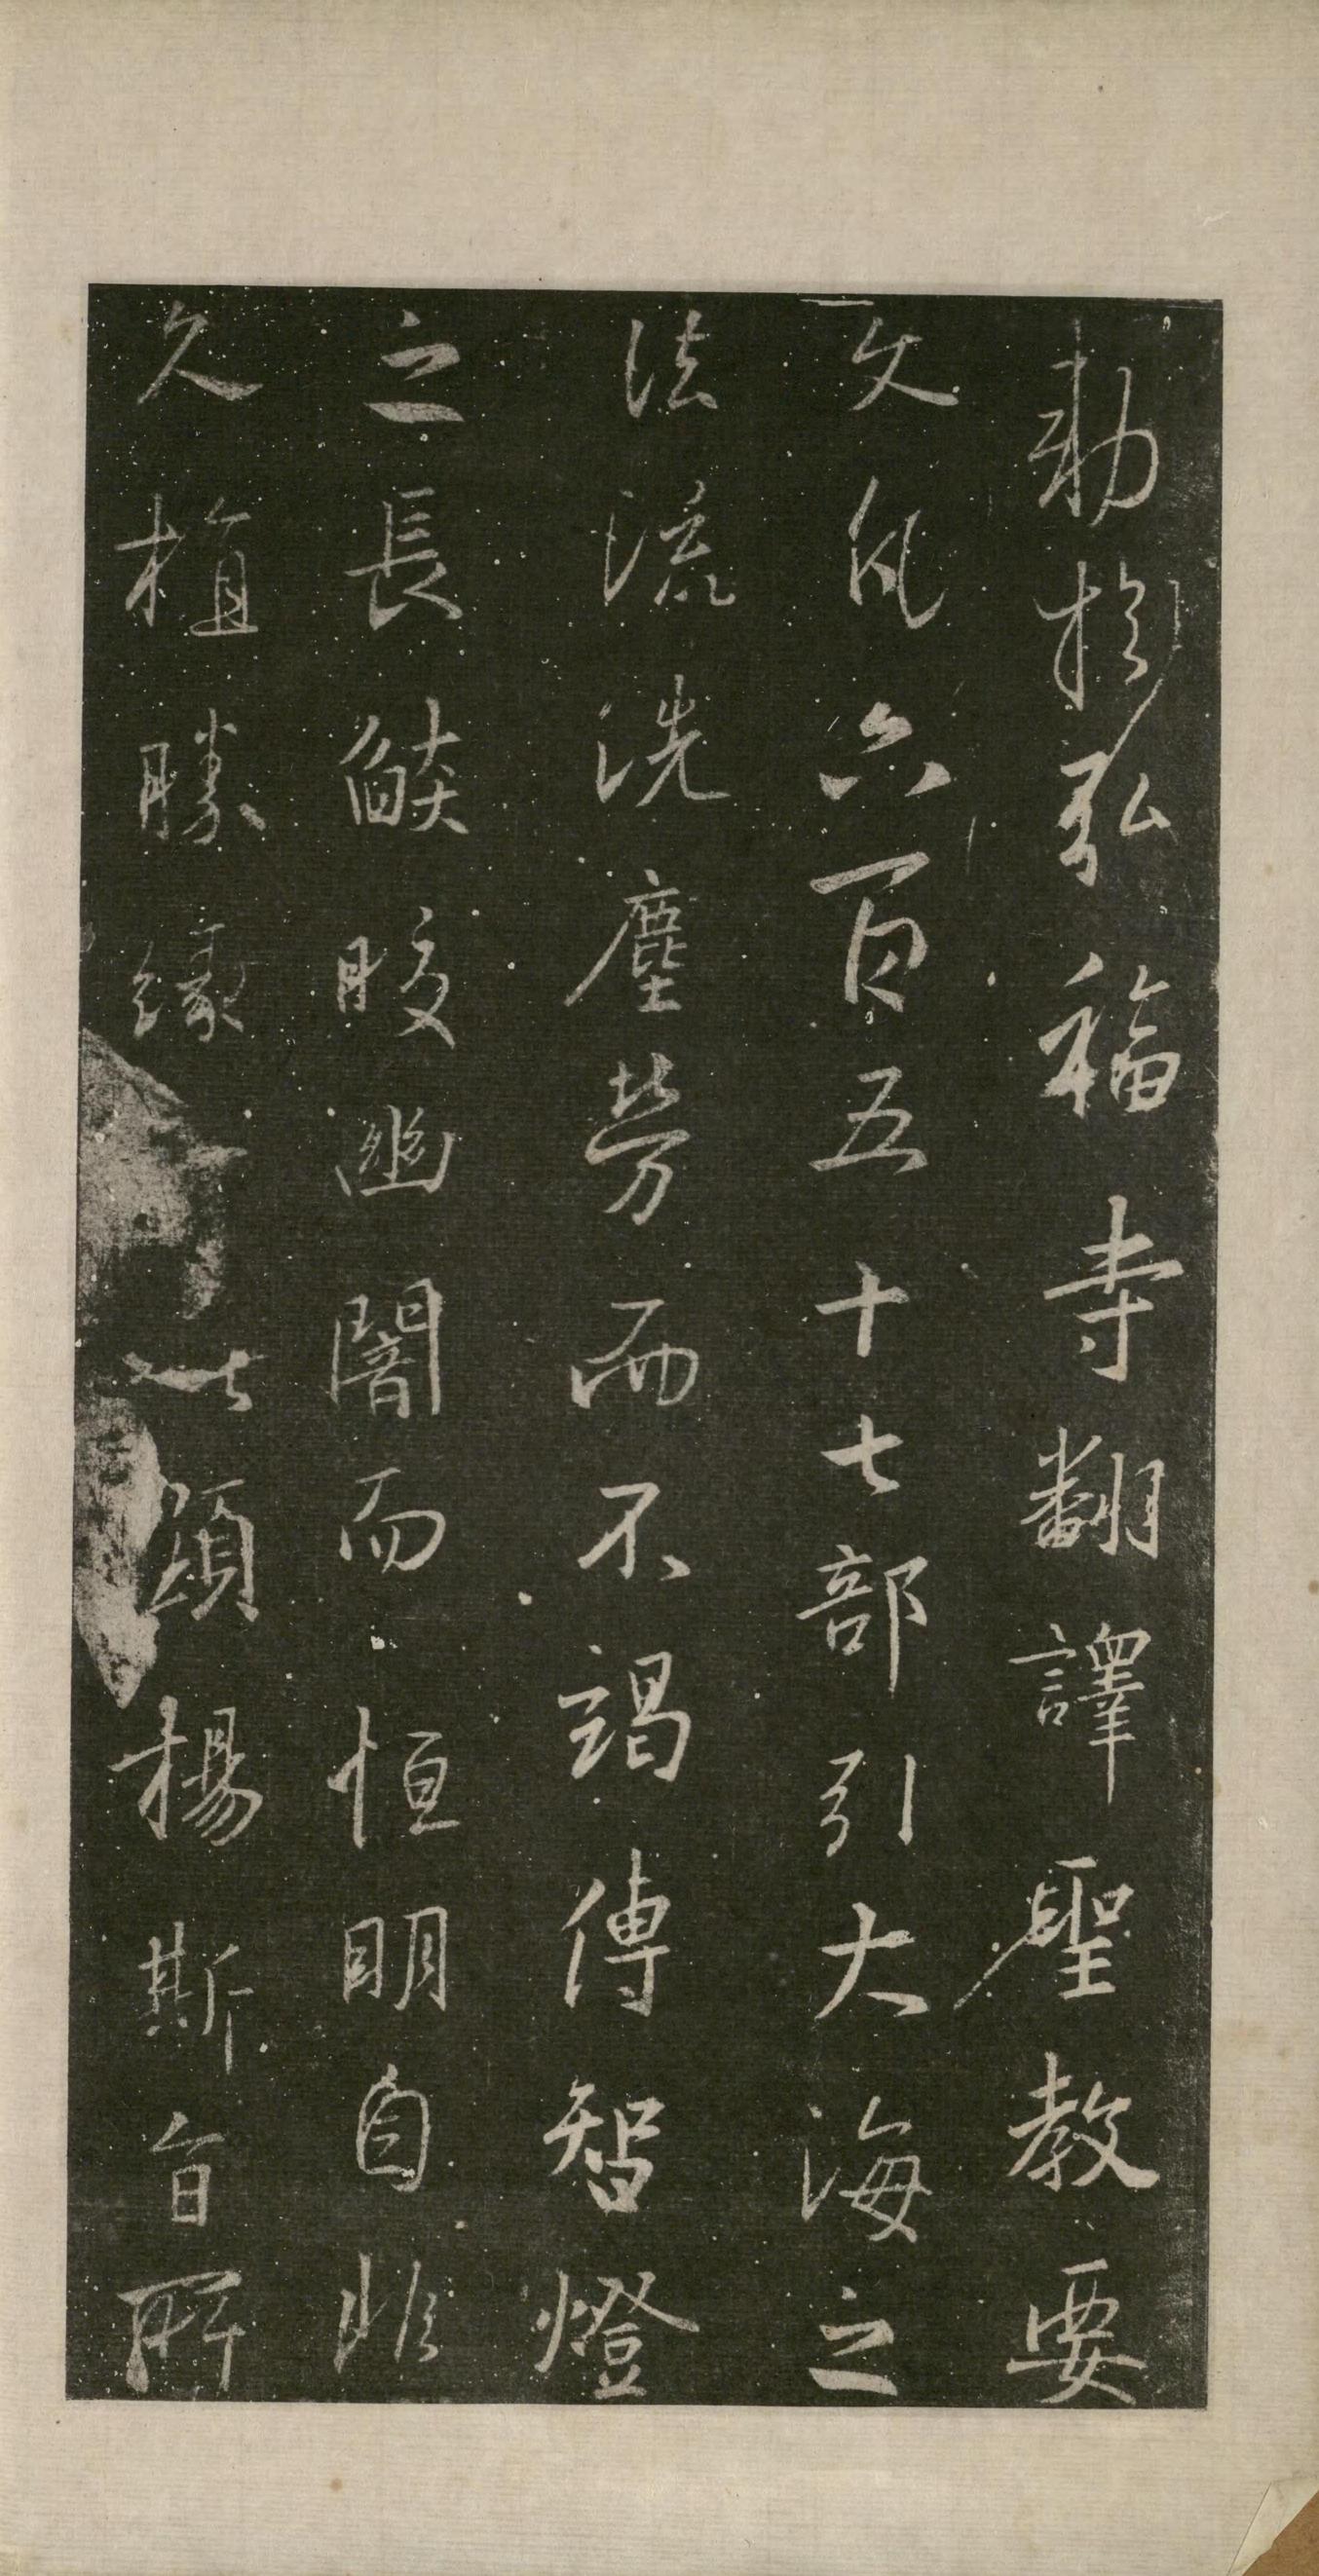 勅於弘福寺翻譯聖教要
文凡六百五十七部引大海之
法流洗塵勞而不竭傳智燈
之長焰皎幽闇而恒明自非
久植勝緣何以顯揚斯旨所